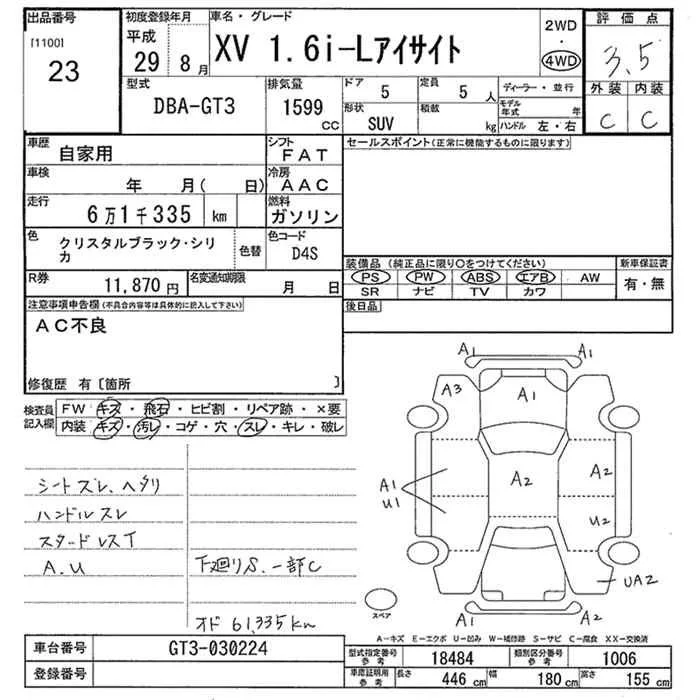 出品番号
[1100]
23
初度登録年月
平成
29 8月
車名・グレード
XV 1.6i-Lアイサイト
2WD
・
4WD
評価点
3.5
型式
DBA-GT3
排気量
1599
CC
ドア 5
定員 5 人
ディーラー・並行
外装 内装
C C
形状
SUV
積載
kg
モデル年式 年
ハンドル 左・右
車歴
自家用
シフト
FAT
セールスポイント(正常に機能するものに限ります)
車検
年 月( 日)
冷房
AAC
走行
6万1千335 km
燃料
ガソリン
色
クリスタルブラック・シリカ
色替
色コード
D4S
装備品 (純正品に限り○をつけてください)
新車保証書
PS PW ABS エアB AW
SR ナビ TV カワ
有・無
R券
11,870 円
名変通知期限
月 日
後日品
注意事項申告欄(不具合内容等は具体的に記入して下さい)
AC不良
修復歴 有〔箇所 〕
検査員
記入欄
FW キズ・飛石・ヒビ割・リペア跡・×要
内装 キズ・汚レ・コゲ・穴・スレ・キレ・破レ
シートズレ、ヘタリ
ハンドルスレ
スタードレスT
A.U
下廻りS.一部C
オド 61,335km
A1 A1
A3 A1
A1
U1
A2 A2
U2
UA2
A1 A2
スペア
A−キズ E−エクボ U−凹み W−補修跡 S−サビ C−腐食 XX−交換済
車台番号
GT3-030224
登録番号
型式指定番号
参考
18484
類別区分番号
参考
1006
車庫証明用
参考
長さ 446 cm
幅 180 cm
高さ 155 cm